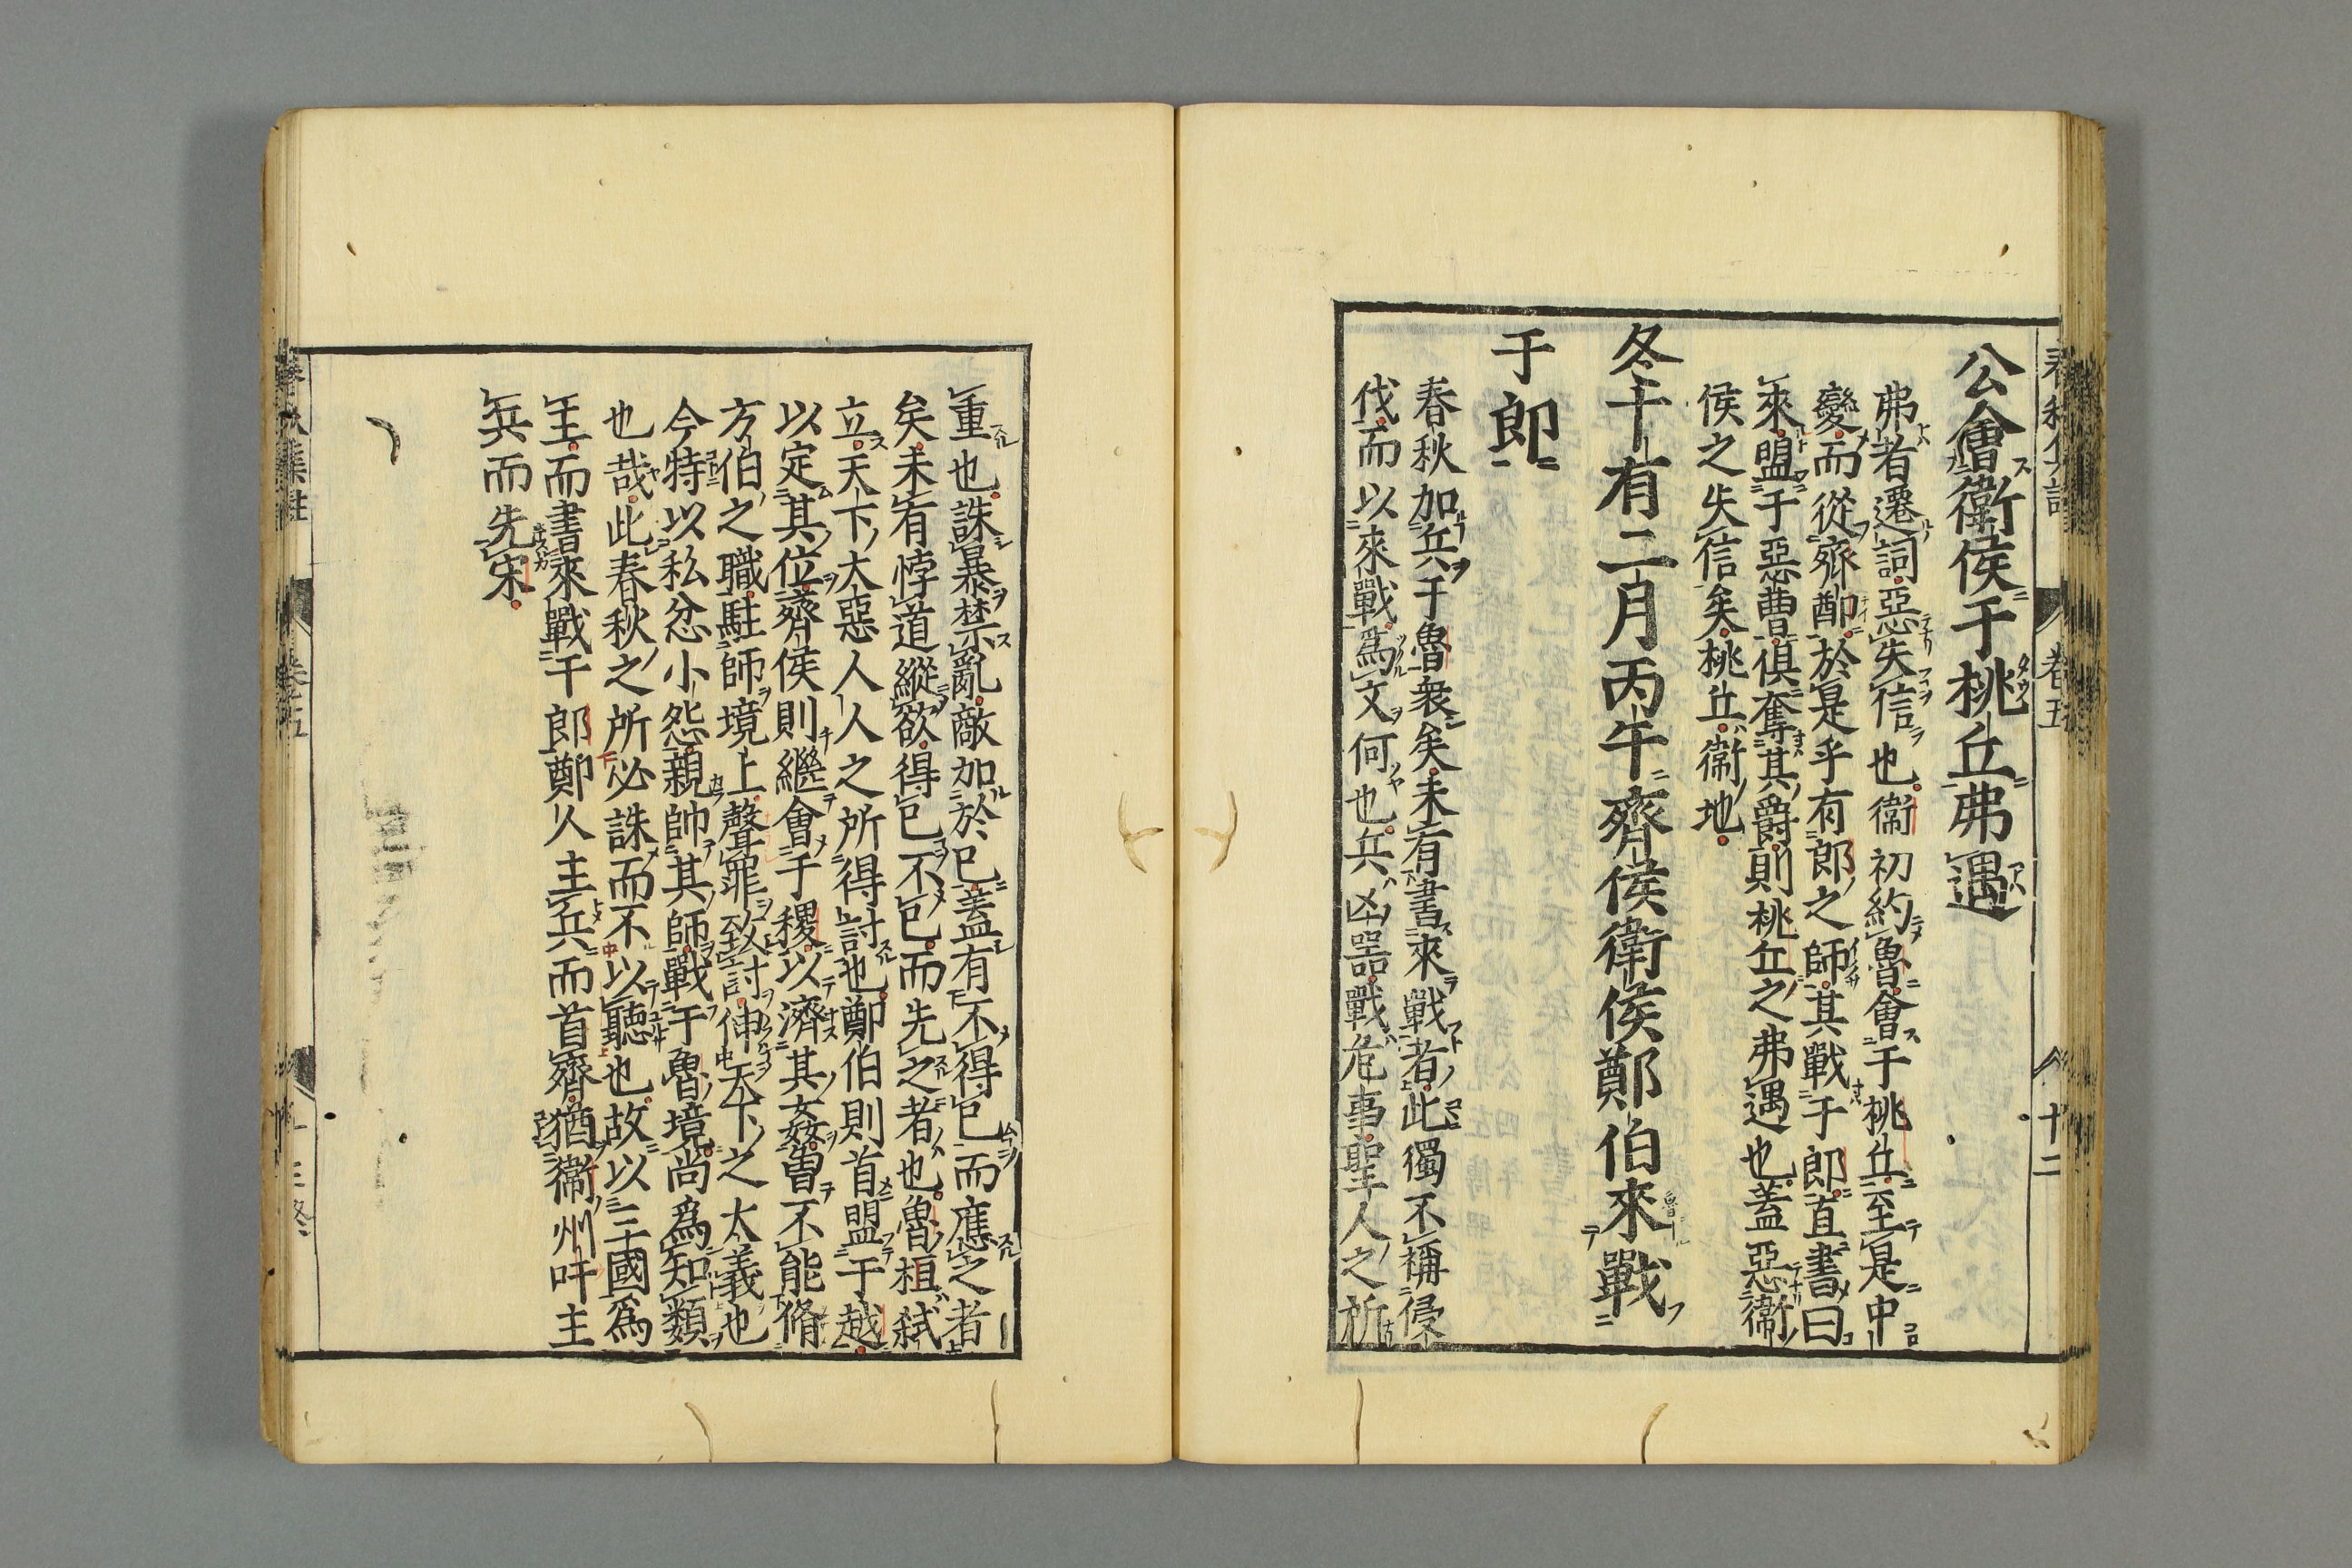 公會衛侯于桃丘弗遇
弗者遷詞惡失信也衛初約魯會于桃丘至是中
變而從齊鄭於是乎有郎之師其戰于郎直書曰
來盟于惡曹俱奪其爵則桃丘之弗遇也蓋惡衛
侯之失信矣桃丘衛地
冬十有二月丙午齊侯衛侯鄭伯來戰
于郎
春秋加兵于魯衆矣未有書來戰者此獨不稱侵
伐而以來戰爲文何也兵凶器戰危事聖人之所
重也誅暴禁亂敵加於已蓋有不得已而應之者
矣未有悖道縱欲得已不已而先之者也魯桓弑
立天下大惡人人之所得討也鄭伯則首盟于越
以定其位齊侯則繼會于稷以濟其姦曽不能脩
方伯之職駐師境上聲罪致討伸天下之大義也
今特以私忿小怨親帥其師戰于魯境尚爲知類
也哉此春秋之所必誅而不以聽也故以三國爲
主而書來戰于郎鄭人主兵而首齊猶衛州吁主
兵而先宋
卷五
十二